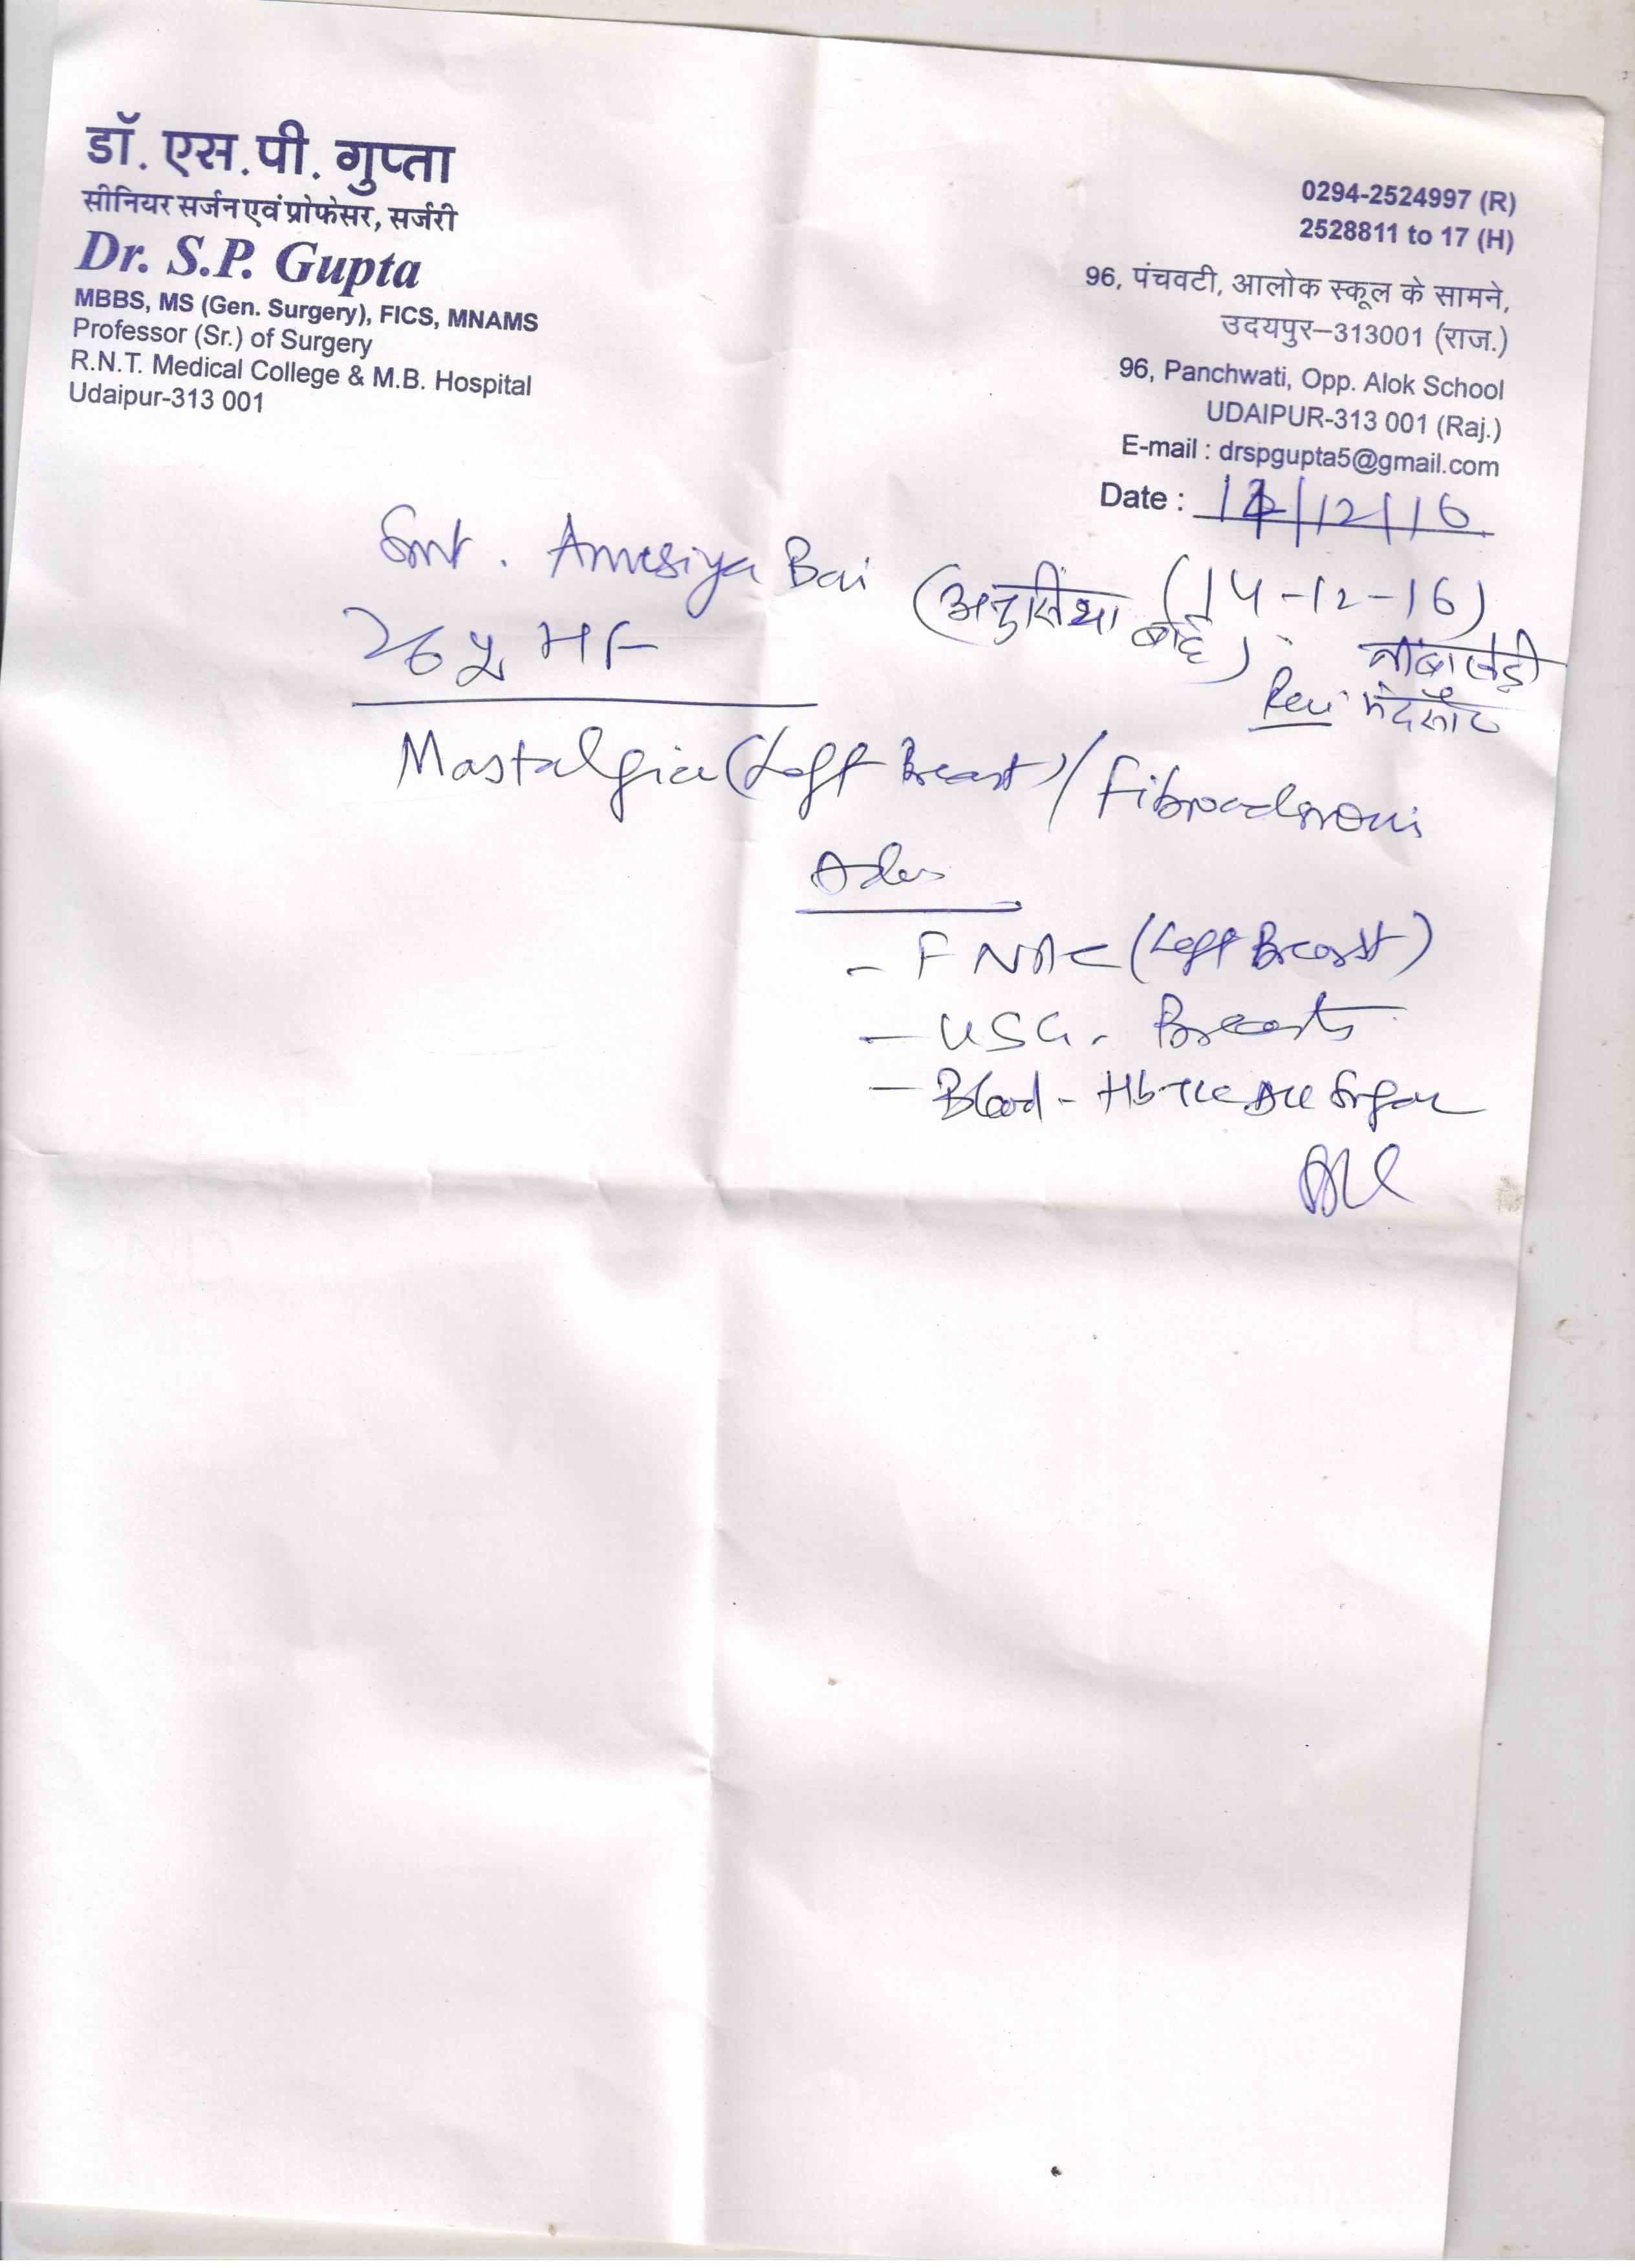 डॉ. एस.पी. गुप्ता
सीनियर सर्जन एवं प्रोफेसर, सर्जरी
Dr. S.P. Gupta
MBBS, MS (Gen. Surgery), FICS, MNAMS
Professor (Sr.) of Surgery
R.N.T. Medical College & M.B. Hospital
Udaipur-313 001
0294-2524997 (R)
2528811 to 17 (H)
96, पंचवटी, आलोक स्कूल के सामने,
उदयपुर–313001 (राज.)
96, Panchwati, Opp. Alok School
UDAIPUR-313 001 (Raj.)
E-mail : drspgupta5@gmail.com
Date : /12/16
Smt. Anusiya Bai (अनुसिया बाई) (14-12-16)
26 y HF
Mastalgia (Left Breast) / Fibroadenoma
Adv
- FNAC (Left Breast)
- USG. Breasts
- Blood - Hb TLC DLC Sugar